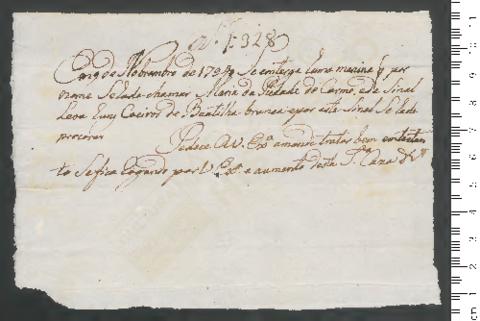 N. 1:328
de Novembro de 1790 Se entrega huma menina q por
nome Se lade chamar Maria da Piedade do Carmo, e de Sinal
Leva huns Coeiros de Baetilha branca e por este Sinal Se lade
procurar
Pedece a V. Ex.ª a mande tratar bem entretan
to Se fica Rogando por V. Ex.ª e aumento desta S.ta Caza &